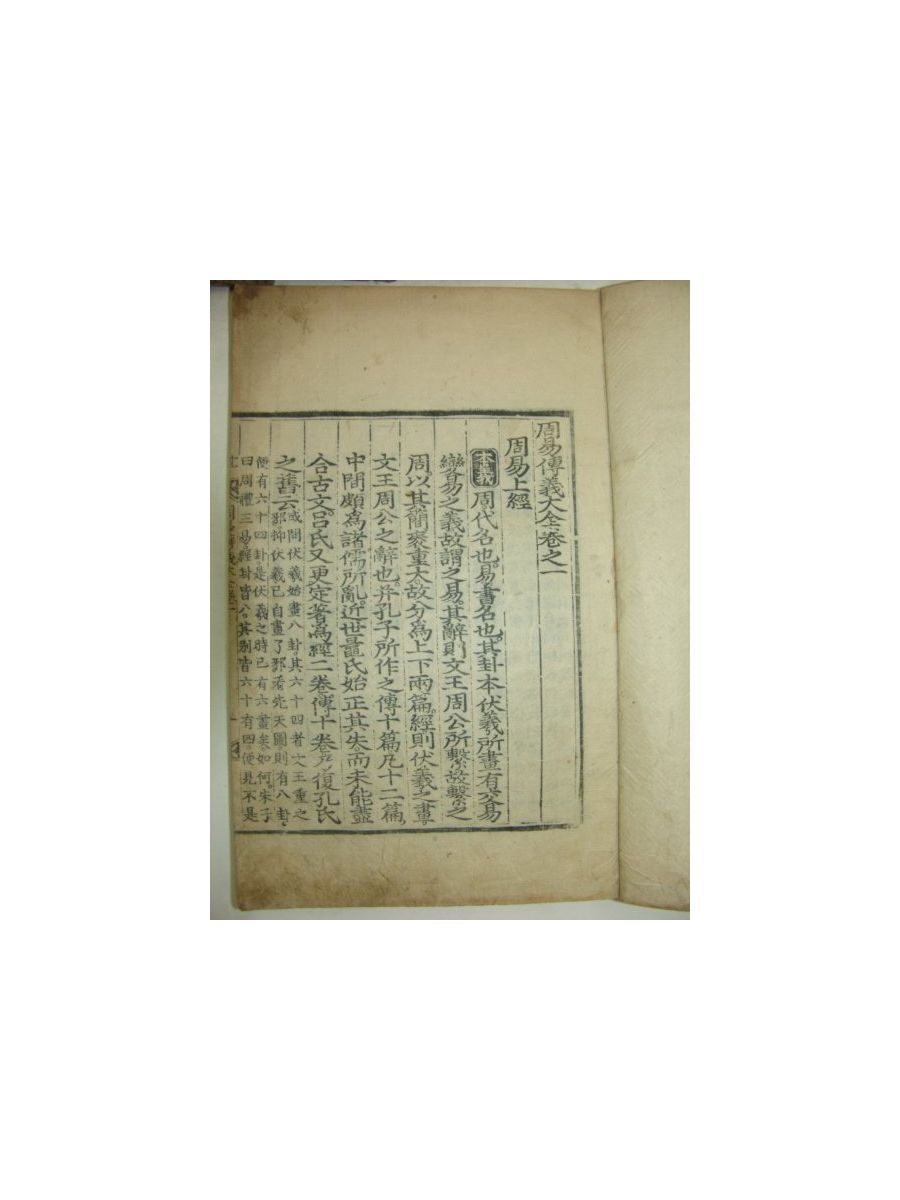 周易傳義大全卷之一
周易上經
本義周代名也。易書名也。其卦本伏羲所畫有交易
變易之義故謂之易。其辭則文王周公所繫故繫之
周。以其簡袠重大故分為上下兩篇。經則伏羲之畫
文王周公之辭也。并孔子所作之傳十篇凡十二篇
中間頗為諸儒所亂。近世鼂氏始正其失而未能盡
合古文。呂氏又更定著為經二卷傳十卷乃復孔氏
之舊云
或問伏羲始畫八卦。其六十四者文王重之
邪抑伏羲已自畫了邪看先天圖則有八卦
便有六十四卦是伏羲之時已有六畫矣。如何。朱子
曰周禮三易經卦皆八。其別皆六十有四。便見不是